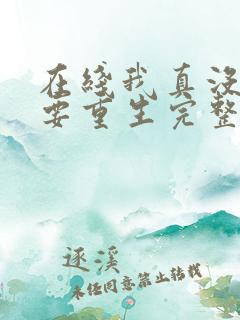 在线我真没
要重生完整
逐溪
未经同意禁止转载